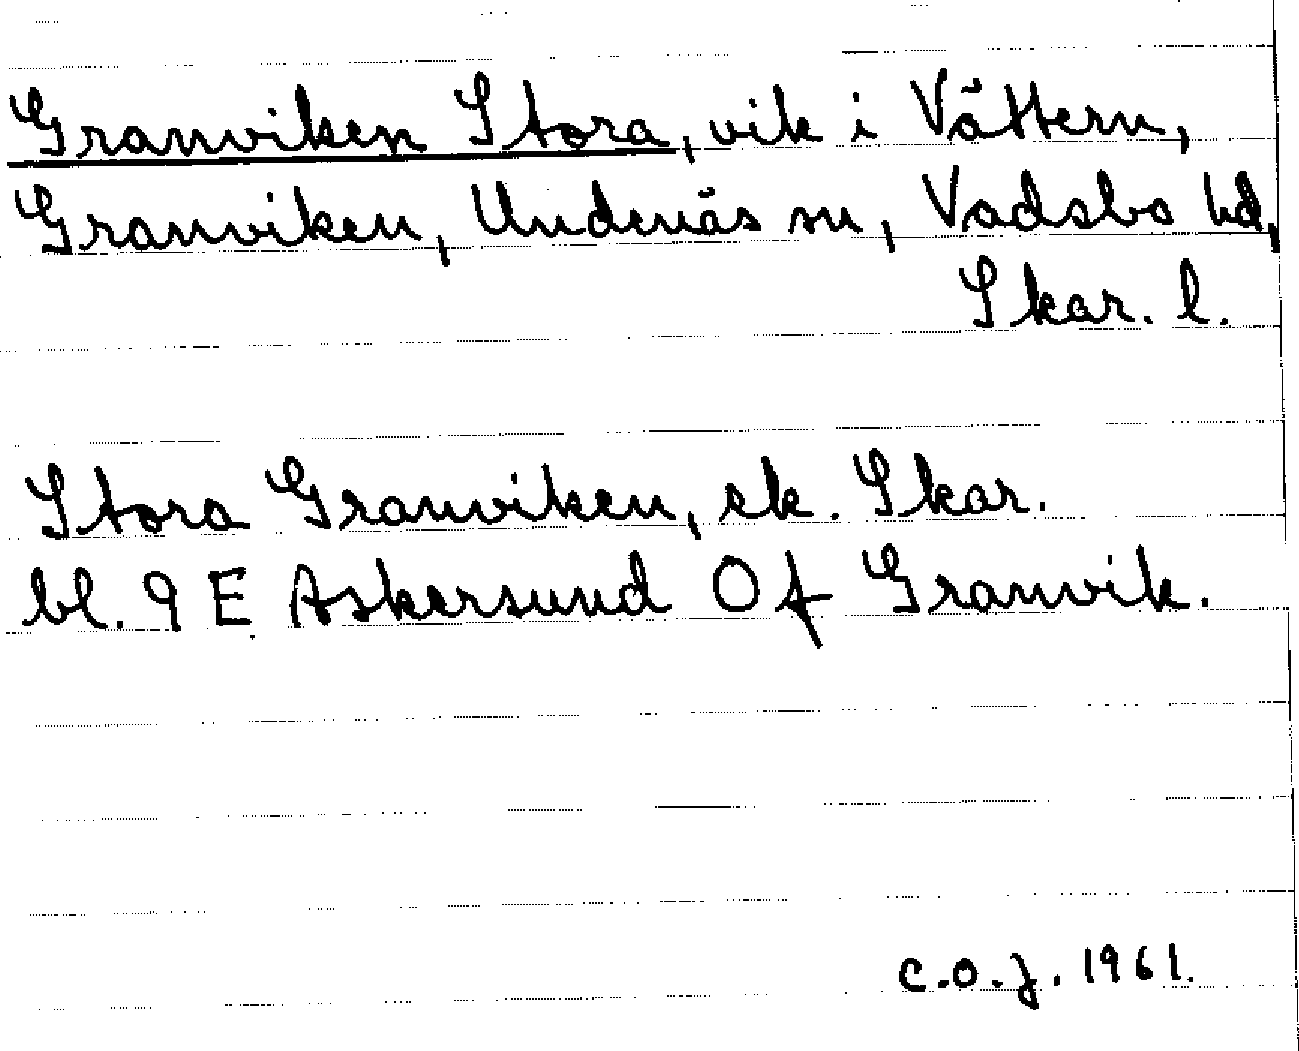 Granviken Stora, vik i Vättern,
Granviken, Undenäs sn, Vadsbo hd,
Skar. l.
Stora Granviken, ek. Skar.
bl. 9 E Askersund Of Granvik.
C.O.J. 1961.